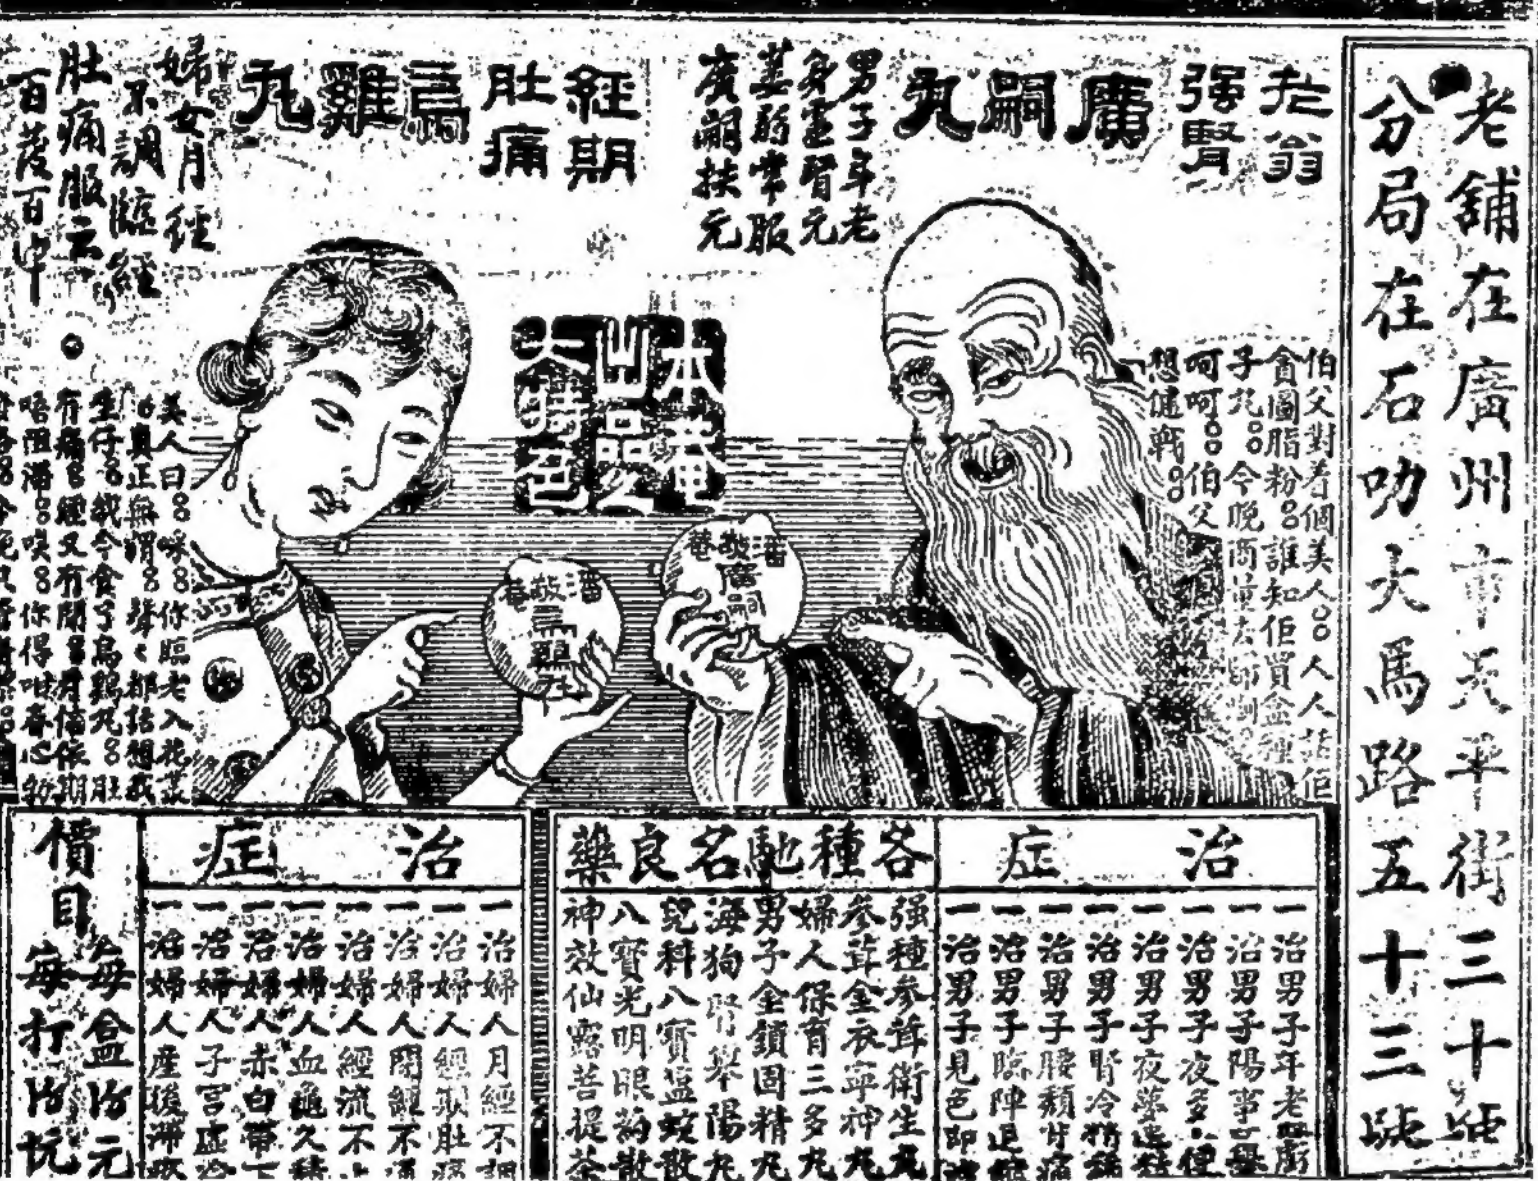 老舖在廣州市天平街三十號
分局在石叻大馬路五十三號
老翁
强腎
廣嗣丸
男子年老
身虛腎元
萎弱常服
廣嗣扶元
經期
肚痛
烏雞丸
婦女月經
不調臨經
肚痛服云
百發百中
本菴
出品之
大特色
伯父對着個美人人人話佢
貪圖脂粉誰知佢買盒種
子丸今晚商量去
呵呵伯父
想健戰
潘敬菴
廣嗣
潘敬菴
烏雞丸
美人曰啋你臨老入花叢
真正無謂聲聲都話想我
生仔我今食亨烏鷄丸肚
冇痛腰又冇閉月信依期
唔阻滯唉你得咁春心
治症
一治男子年老
一治男子陽事
一治男子夜多便
一治男子夜夢遺精
一治男子腎冷精稀
一治男子腰頹骨痛
一治男子臨陣退縮
一治男子見色即
各種馳名良藥
强種參茸衛生丸
參茸金衣寧神丸
婦人保育三多丸
男子金鎖固精丸
海狗腎舉陽丸
兒科八寶鹽蛇散
八寶光明眼葯散
神效仙露菩提茶
治症
一治婦人月經不調
一治婦人經期肚痛
一治婦人閉經不通
一治婦人經流不
一治婦人血龜久積
一治婦人赤白帶下
一治婦人子宫虛冷
一治婦人產後滯
價目
每盒
每打